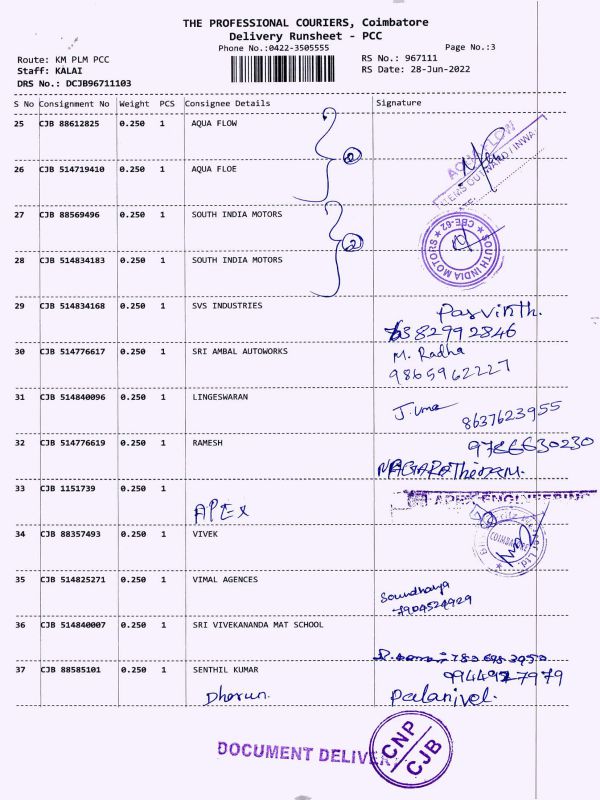 THE PROFESSIONAL COURIERS, Coimbatore
Delivery Runsheet - PCC
Phone No.:0422-3505555
Page No.:3
Route: KM PLM PCC
RS No.: 967111
Staff: KALAI
RS Date: 28-Jun-2022
DRS No.: DCJB96711103
S No Consignment No Weight PCS Consignee Details Signature
25 CJB 88612825 0.250 1 AQUA FLOW
2
AQUA FLOW
26 CJB 514719410 0.250 1 AQUA FLOE
27 CJB 88569496 0.250 1 SOUTH INDIA MOTORS
2
SOUTH INDIA MOTORS ★ CBE-62 ★
28 CJB 514834183 0.250 1 SOUTH INDIA MOTORS
29 CJB 514834168 0.250 1 SVS INDUSTRIES
Parvinth.
6382992846
30 CJB 514776617 0.250 1 SRI AMBAL AUTOWORKS
M. Radha
9865962227
31 CJB 514840096 0.250 1 LINGESWARAN
J. Uma 8637623955
32 CJB 514776619 0.250 1 RAMESH
9786630230
33 CJB 1151739 0.250 1
APEX
APEX ENGINEERING
34 CJB 88357493 0.250 1 VIVEK
COIMBATORE
35 CJB 514825271 0.250 1 VIMAL AGENCES
Soundharya
7904524929
36 CJB 514840007 0.250 1 SRI VIVEKANANDA MAT SCHOOL
37 CJB 88585101 0.250 1 SENTHIL KUMAR
Dharun.
Palanivel.
DOCUMENT DELIVERY
CNP
CJB